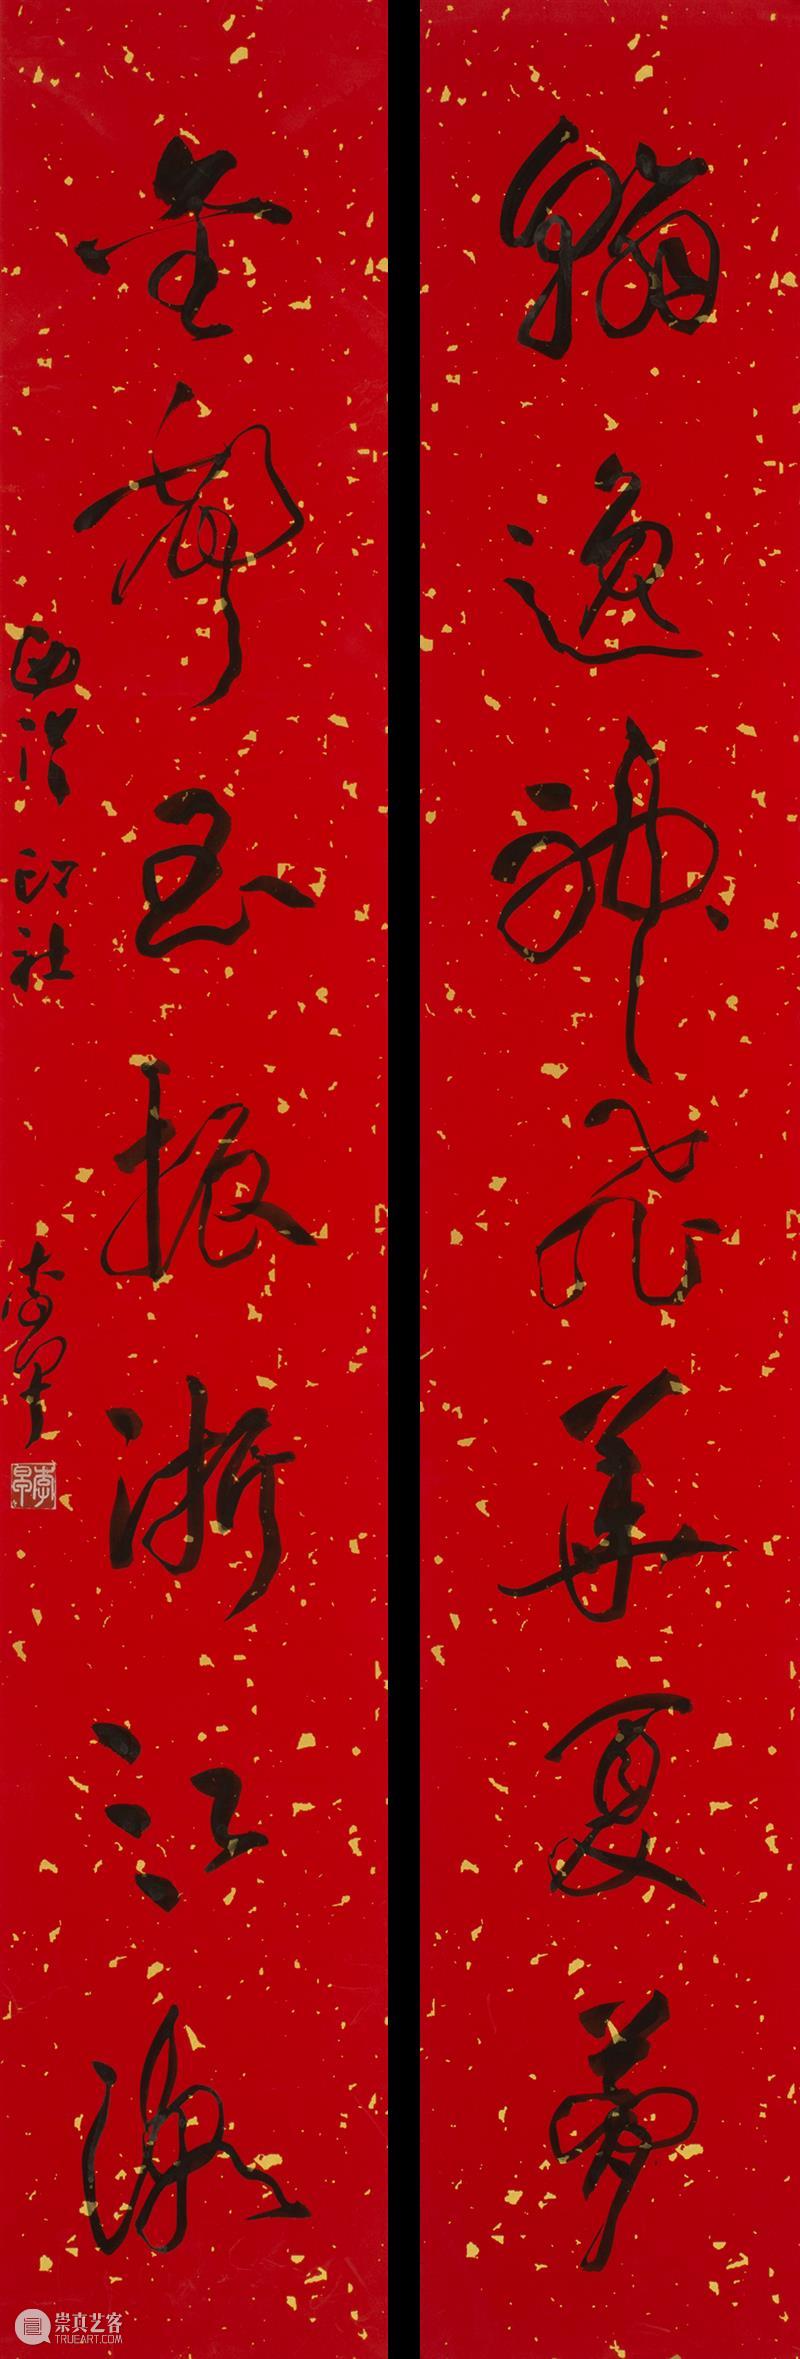 翰逸神飛華夏夢
金聲玉振浙江潮
西泠印社 李早
李早
崇真艺客
TRUEART.COM